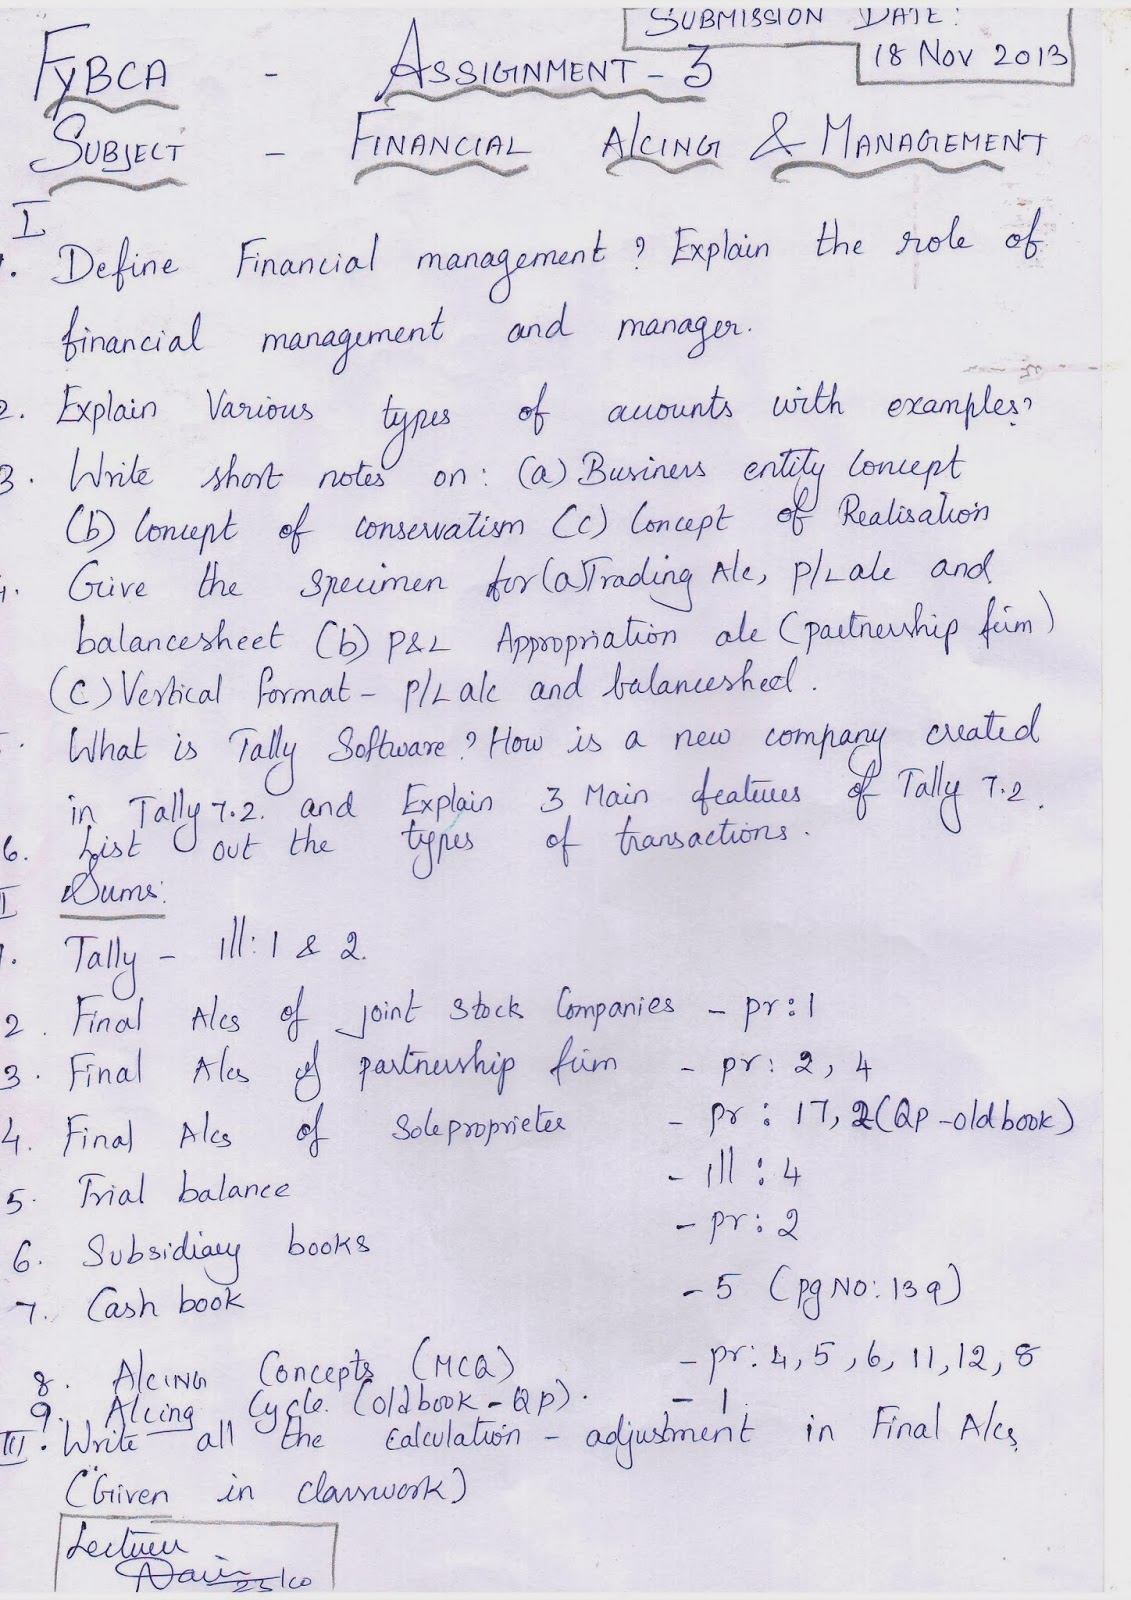 SUBMISSION DATE:
18 NOV 2013
FYBCA - ASSIGNMENT - 3
SUBJECT - FINANCIAL A/CING & MANAGEMENT
I
1. Define Financial management? Explain the role of
financial management and manager.
2. Explain Various types of accounts with examples?
3. Write short notes on: (a) Business entity Concept
(b) Concept of conservatism (c) Concept of Realisation
4. Give the specimen for (a) Trading A/c, P/L a/c and
balancesheet (b) P&L Appropriation a/c (partnership firm)
(c) Vertical format - P/L a/c and balancesheet.
5. What is Tally Software? How is a new company created
in Tally 7.2. and Explain 3 Main features of Tally 7.2.
6. List out the types of transactions.
II Sums:
1. Tally - Ill: 1 & 2.
2. Final A/cs of joint stock Companies - pr: 1
3. Final A/cs of partnership firm - pr: 2, 4
4. Final A/cs of Soleproprieter - pr: 17, 2 (QP - old book)
5. Trial balance - Ill: 4
6. Subsidiary books - pr: 2
7. Cash book - 5 (pg NO: 139)
8. A/CING Concepts (MCQ) - pr: 4, 5, 6, 11, 12, 8
9. A/cing Cycle. (old book - QP). - 1.
III. Write all the calculation - adjustment in Final A/cs
(Given in classwork)
Lecturer